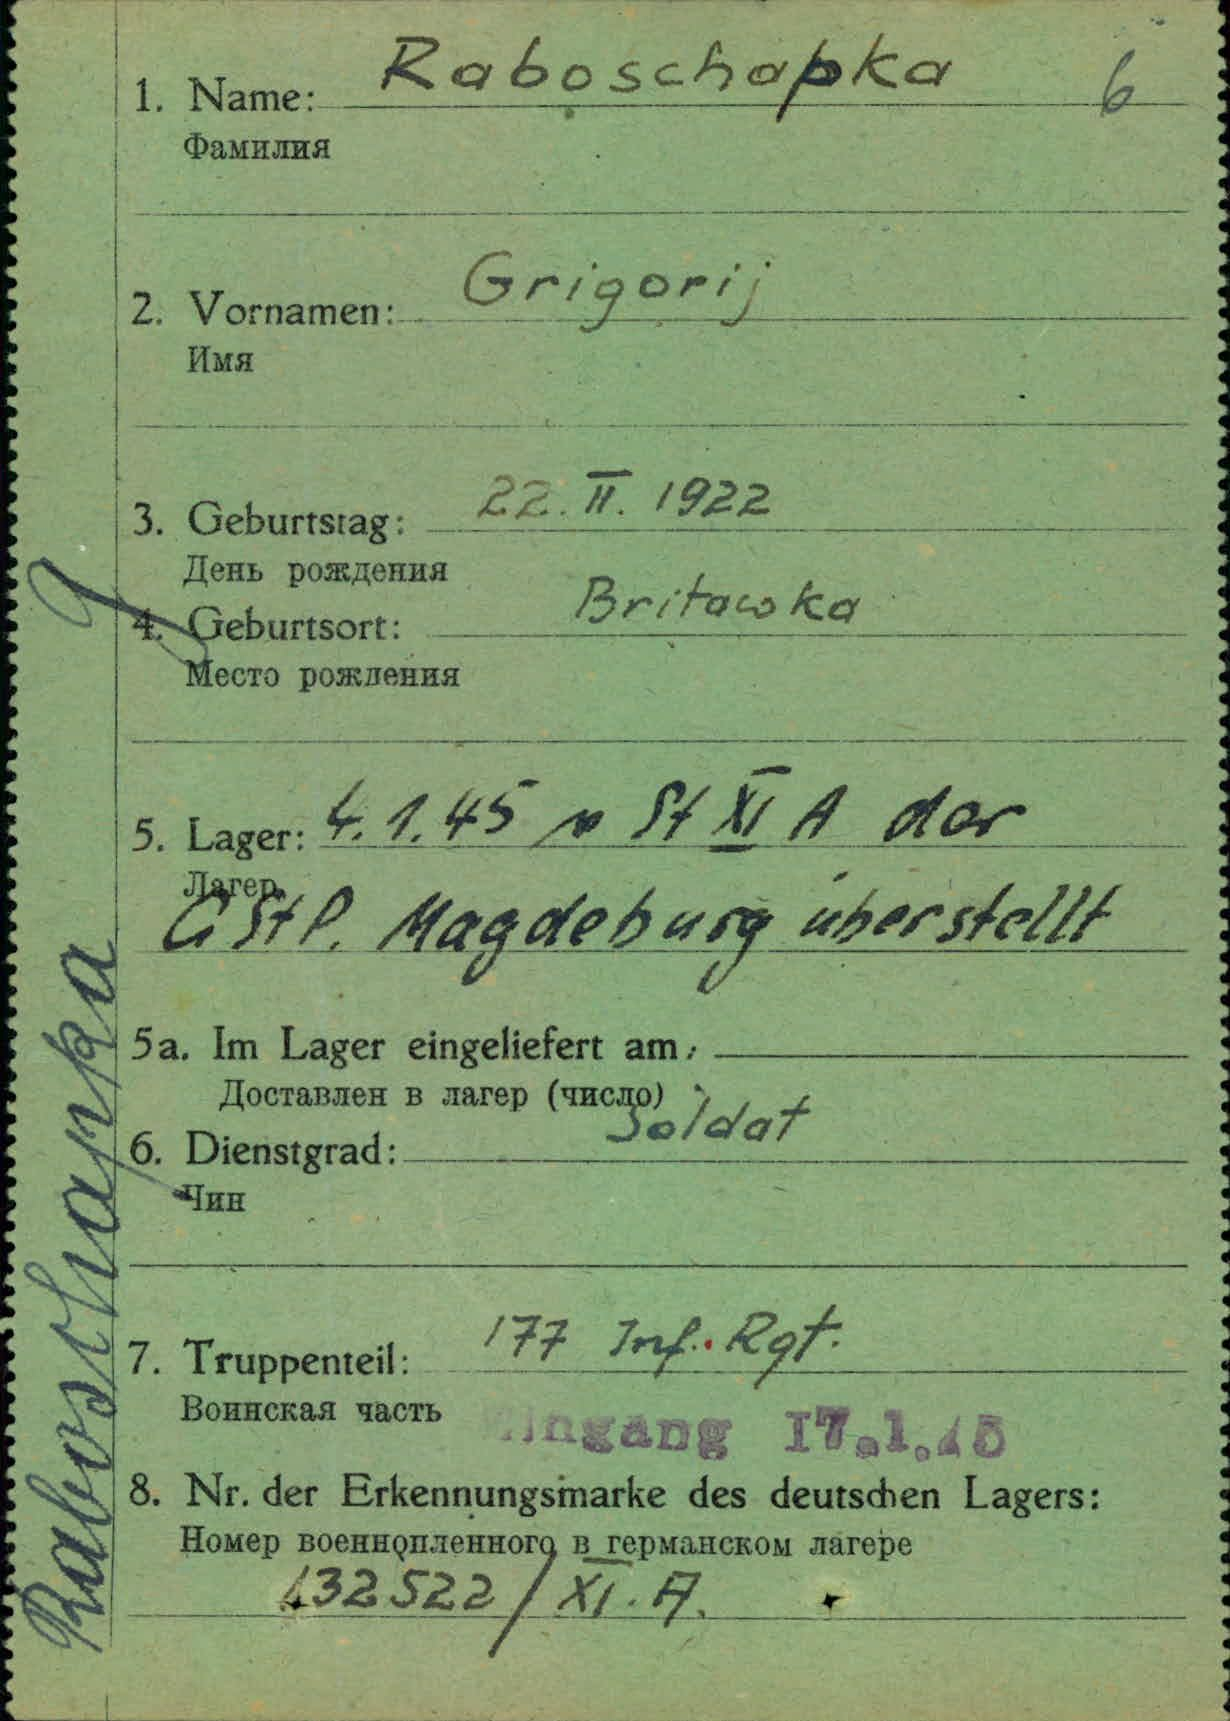 Raboschapka 6
1. Name:
Фамилия
Grigorij
2. Vornamen:
Имя
22. II. 1922
3. Geburtstag:
День рождения
Britawka
4. Geburtsort:
Место рождения
5. Lager: 4.1.45 v St XI A der
Лагер
G St P. Magdeburg überstellt
5a. Im Lager eingeliefert am:
Доставлен в лагер (число)
Soldat
6. Dienstgrad:
Чин
177 Inf. Rgt.
7. Truppenteil:
Воинская часть
Eingang 17.1.45
8. Nr. der Erkennungsmarke des deutschen Lagers:
Номер военнопленного в германском лагере
132522/XI.A.
Raboschapka g